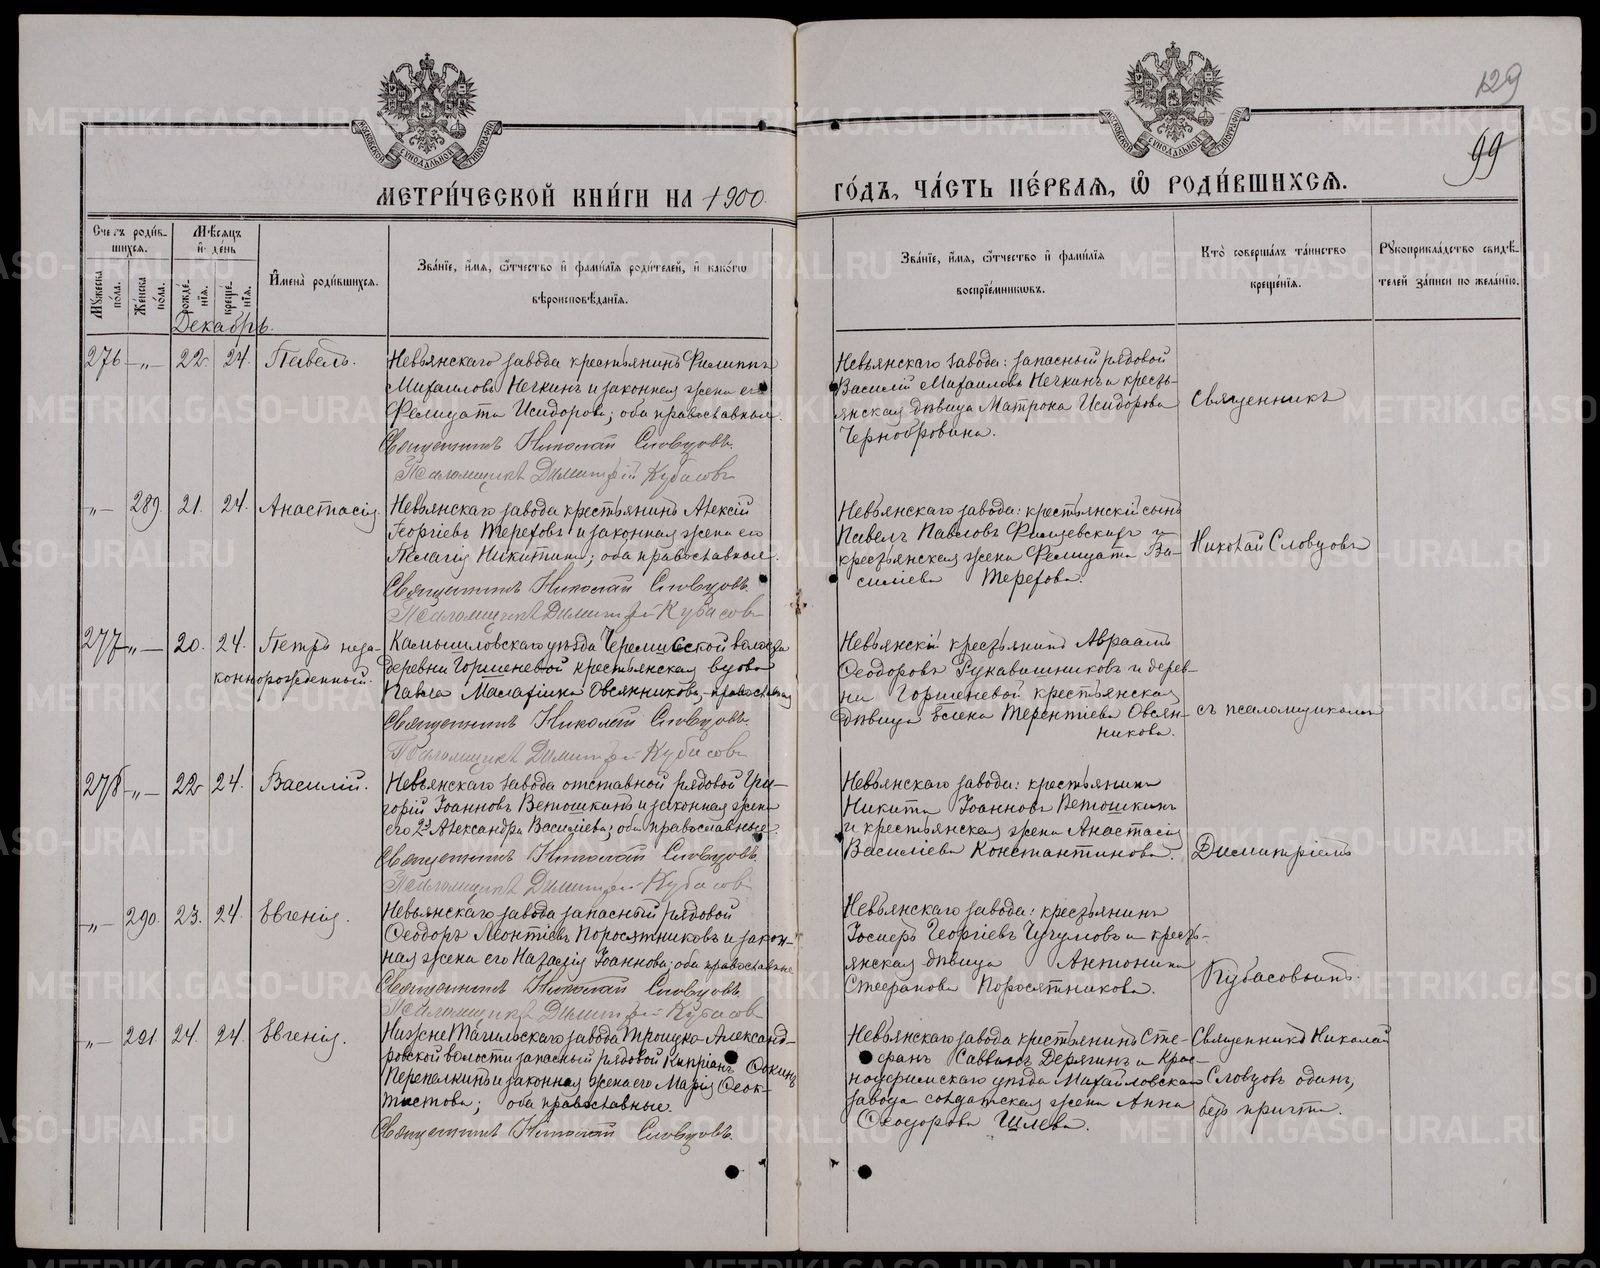 129
99
МОСКОВСКОЙ СУНОДАЛЬНОЙ ТИПОГРАФІИ
МОСКОВСКОЙ СУНОДАЛЬНОЙ ТИПОГРАФІИ
МЕТРИ́ЧЕСКОЙ КНИ́ГИ НА 1900
ГО́ДЪ, ЧА́СТЬ ПЕ́РВАѦ, Ѡ҆ РОДИ́ВШИХСѦ.
Счетъ роди́в-
шихсѧ.
Мѣ́сѧцъ
и҆ де́нь
Мꙋжеска
по́ла.
Же́нска
по́ла.
рожде́-
нїѧ.
креще́-
нїѧ.
И҆мена̀ роди́вшихсѧ.
Зва́нїе, и҆́мѧ, ѻ҆́тчество и҆ фами́лїѧ роди́телей, и҆ како́гѡ
вѣроисповѣ́данїѧ.
Зва́нїе, и҆́мѧ, ѻ҆́тчество и҆ фами́лїѧ
воспрїе́мникѡвъ.
Кто̀ соверша́лъ та́инство
креще́нїѧ.
Рꙋкоприкла́дство свидѣ́-
телей за́писи по жела́нїю.
Декабрь.
276 -„- 22. 24. Павелъ.
Невьянскаго завода крестьянинъ Филиппъ
Михаиловъ Нечкинъ и законная жена его
Фелицата Исидорова; оба православные.
Священникъ Николай Словцовъ.
Псаломщикъ Димитрій Кубасовъ
Невьянскаго завода: запасный рядовой
Василій Михаиловъ Нечкинъ и кресть-
янская дѣвица Матрона Исидорова
Чернобровина.
Священникъ
-„- 289. 21. 24. Анастасія.
Невьянскаго завода крестьянинъ Алексій
Георгіевъ Тереховъ и законная жена его
Пелагія Никитина; оба православные.
Священникъ Николай Словцовъ.
Псаломщикъ Димитрій Кубасовъ
Невьянскаго завода: крестьянскій сынъ
Павелъ Павловъ и
крестьянская жена Фелицата Ва-
силіева Терехова.
Николай Словцовъ
277 -„- 20. 24. Петръ неза-
коннорожденный.
Камышловскаго уѣзда Черемисской волости
деревни Горшеневой крестьянская вдова
Павла Овсянникова, православная
Священникъ Николай Словцовъ.
Псаломщикъ Димитрій Кубасовъ
Невьянскій крестьянинъ Авраамъ
Ѳеодоровъ Рукавишниковъ и дерев-
ни Горшеневой крестьянская
дѣвица Елена Терентіева Овсян-
никова.
съ псаломщикомъ
278 -„- 22 24. Василій.
Невьянскаго завода отставной рядовой Гри-
горій Іоанновъ Ветошкинъ и законная жена
его 2я Александра Василіева; оба православные.
Священникъ Николай Словцовъ.
Псаломщикъ Димитрій Кубасовъ
Невьянскаго завода: крестьянинъ
Никита Іоанновъ Ветошкинъ
и крестьянская жена Анастасія
Василіева Константинова.
Димитріемъ
-„- 290. 23. 24. Евгенія.
Невьянскаго завода запасный рядовой
Ѳеодоръ Леонтіевъ Поросятниковъ и закон-
ная жена его Іоаннова; оба православные
Священникъ Николай Словцовъ.
Псаломщикъ Димитрій Кубасовъ
Невьянскаго завода: крестьянинъ
Іосифъ Георгіевъ Чугумовъ и кресть-
янская дѣвица Антонина
Стефанова Поросятникова.
Кубасовымъ.
-„- 291. 24. 24. Евгенія.
Нижне Тагильскаго завода Троицко-Александ-
ровской волости запасный рядовой Кипріанъ
Перепелкинъ и законная жена его Марія Ѳеок-
тистова; оба православные.
Священникъ Николай Словцовъ.
Невьянскаго завода крестьянинъ Сте-
фанъ Саввинъ Дерягинъ и Крас-
ноуфимскаго уѣзда Михайловскаго
завода солдатская жена Анна
Ѳеодорова Шлева.
Священникъ Николай
Словцовъ одинъ,
безъ причта.
METRIKI.GASO-URAL.RU